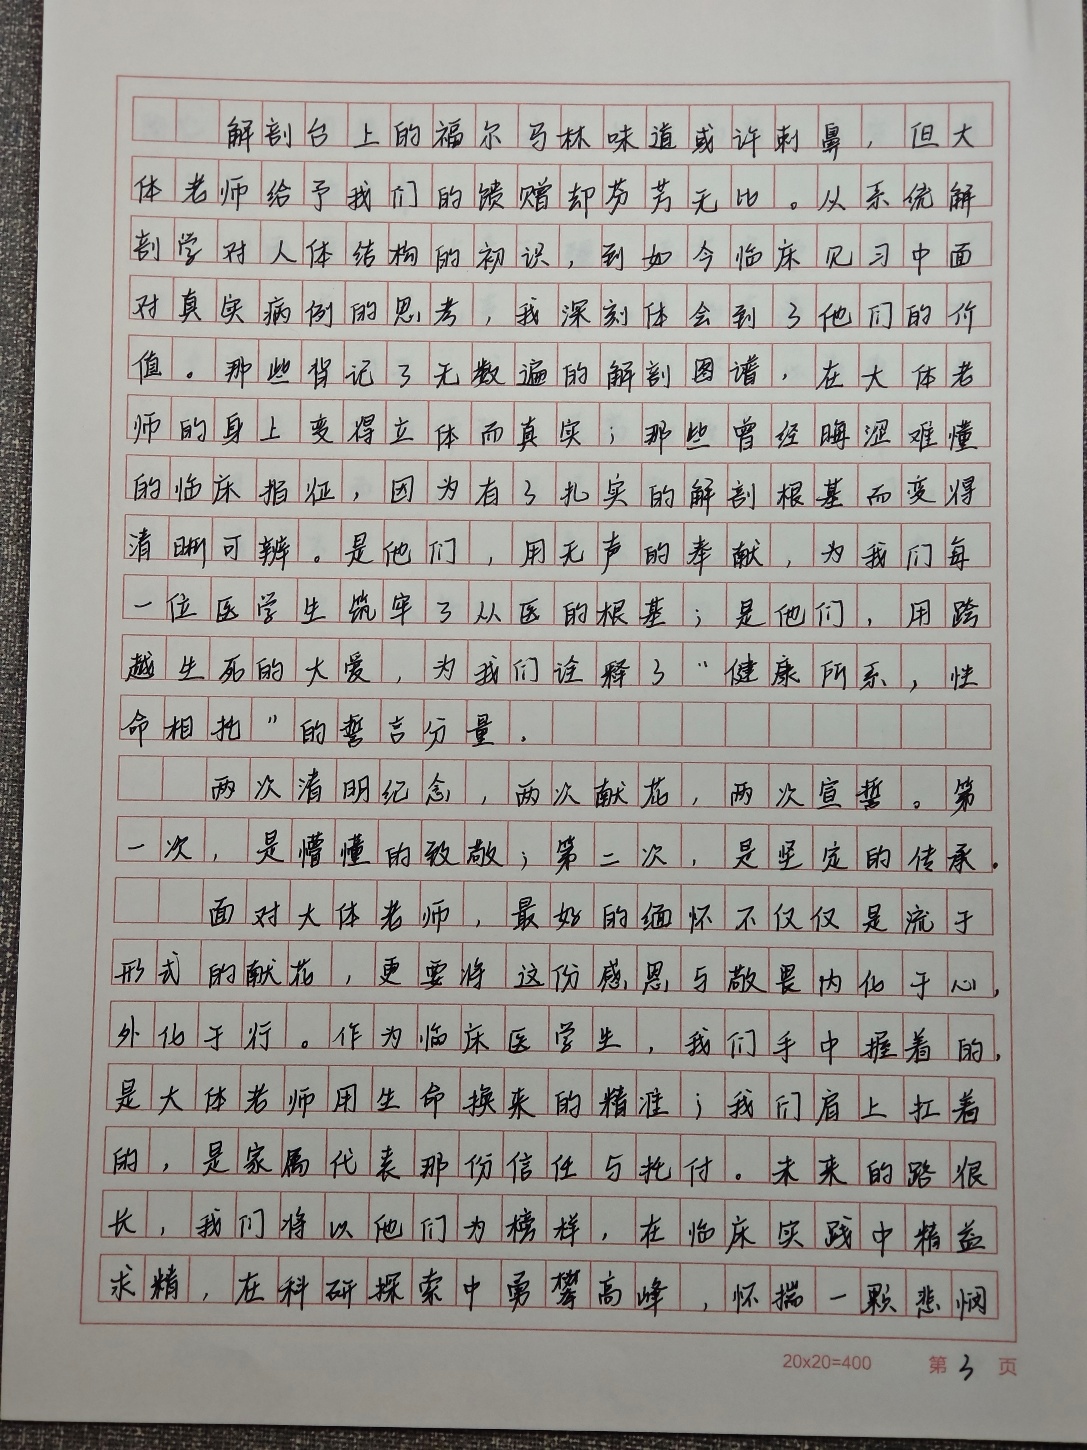 解剖台上的福尔马林味道或许刺鼻，但大
体老师给予我们的馈赠却芬芳无比。从系统解
剖学对人体结构的初识，到如今临床见习中面
对真实病例的思考，我深刻体会到了他们的价
值。那些背记了无数遍的解剖图谱，在大体老
师的身上变得立体而真实；那些曾经晦涩难懂
的临床指征，因为有了扎实的解剖根基而变得
清晰可辨。是他们，用无声的奉献，为我们每
一位医学生筑牢了从医的根基；是他们，用跨
越生死的大爱，为我们诠释了“健康所系，性
命相托”的誓言分量．
两次清明纪念，两次献花，两次宣誓。第
一次，是懵懂的致敬；第二次，是坚定的传承．
面对大体老师，最好的缅怀不仅仅是流于
形式的献花，更要将这份感恩与敬畏内化于心，
外化于行。作为临床医学生，我们手中握着的，
是大体老师用生命换来的精准；我们肩上扛着
的，是家属代表那份信任与托付。未来的路很
长，我们将以他们为榜样，在临床实践中精益
求精，在科研探索中勇攀高峰，怀揣一颗悲悯
20x20=400 第 3 页